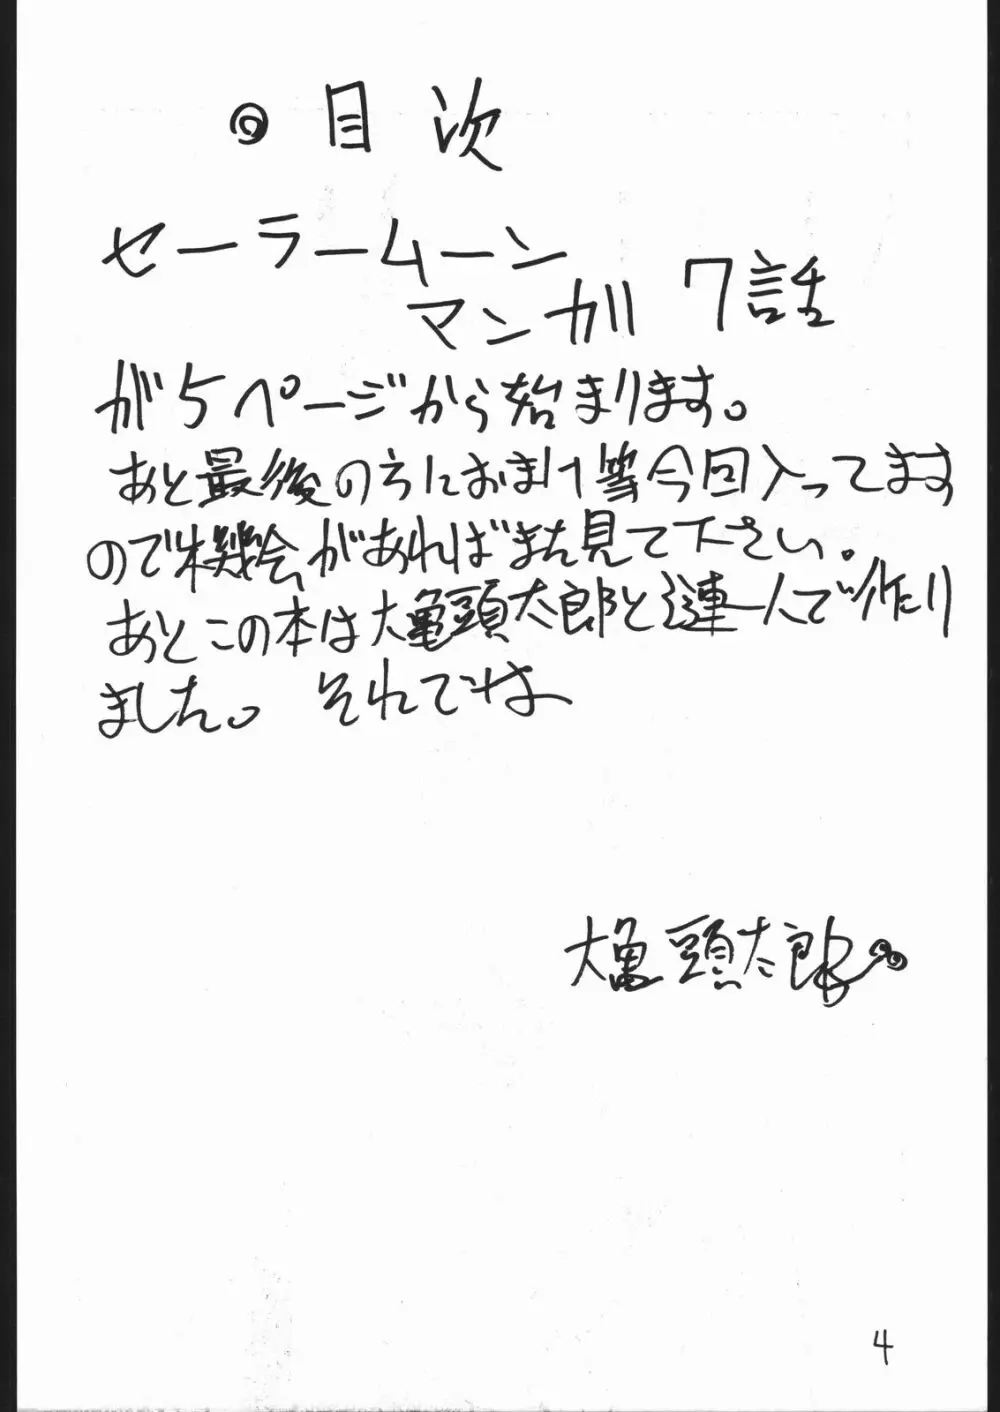 ◎ 目次
セーラームーン
マンガ 7話
が5ページから始まります。
あと最後の方におまけ等今回入ってます
ので機会があればまた見て下さい。
あとこの本は大亀頭太郎と
人で作り
ました。 それでは
大亀頭太郎
4